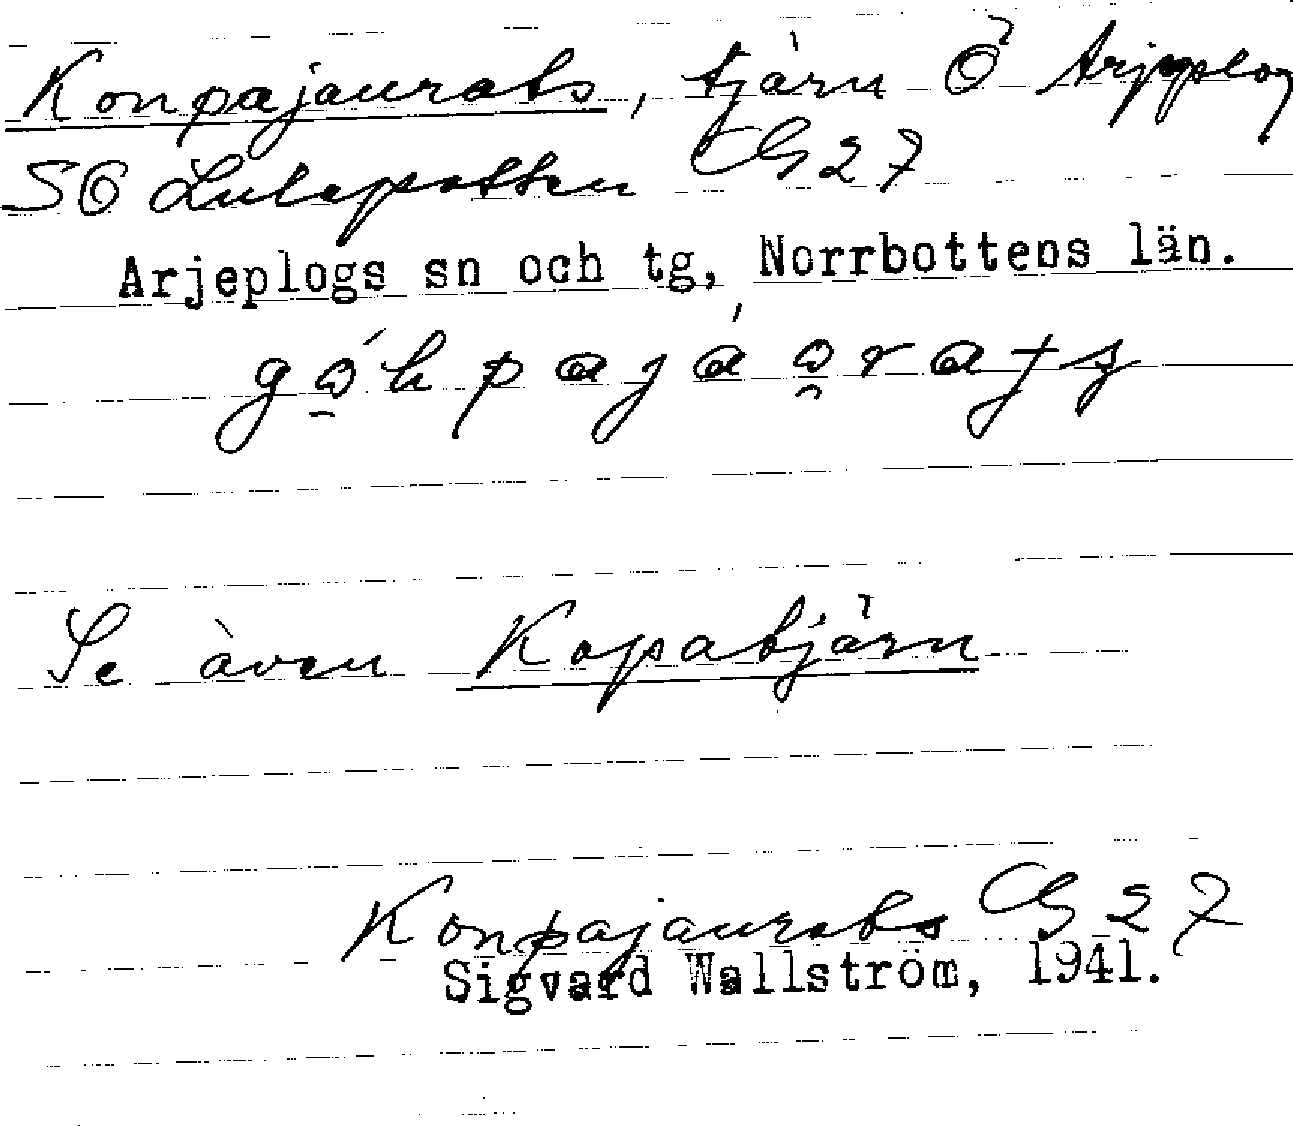 Konpajaurats, tjärn Ö Arjeplog
SO Lulepotten CG 27
Arjeplogs sn och tg, Norrbottens län.
Se även Kopatjärn
Konpajaurats CG 27
Sigvard Wallström, 1941.